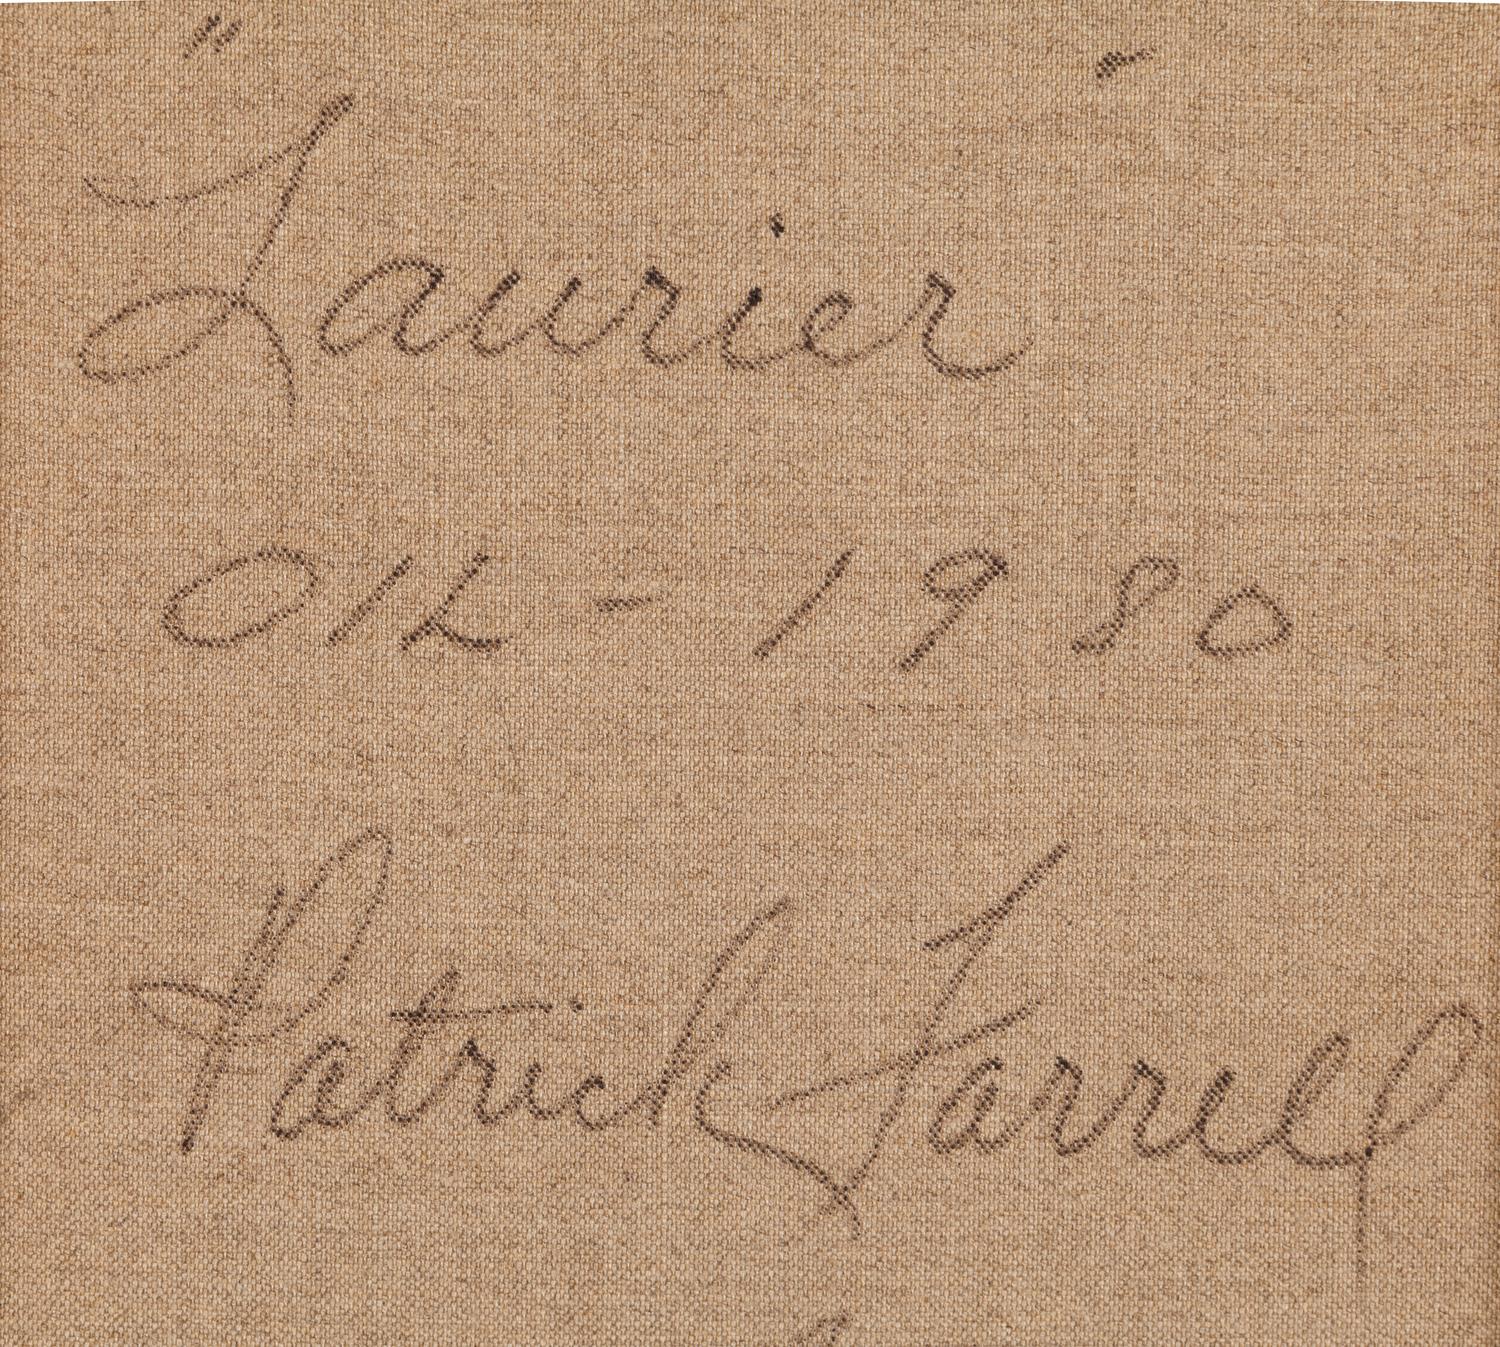 "Laurier"
Oil - 1980
Patrick Farrell